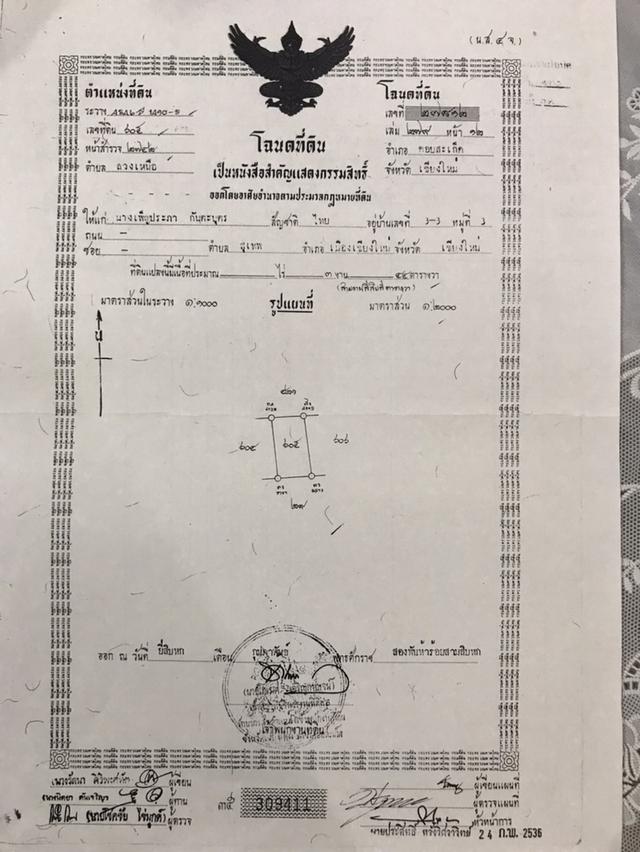 (น.ส.๔ จ.)
ตำแหน่งที่ดิน
ระวาง
เลขที่ดิน ๖๐๕
หน้าสำรวจ ๒๗๔๒
ตำบล ลวงเหนือ
โฉนดที่ดิน
เลขที่ ๒๗๙๑๒
เล่ม ๒๗๙ หน้า ๑๒
อำเภอ ดอยสะเก็ด
จังหวัด เชียงใหม่
โฉนดที่ดิน
เป็นหนังสือสำคัญแสดงกรรมสิทธิ์
ออกโดยอาศัยอำนาจตามประมวลกฎหมายที่ดิน
ให้แก่ นางเพ็ญประภา กันตะบุตร สัญชาติ ไทย อยู่บ้านเลขที่ 3-3 หมู่ที่ 3
ถนน –
ซอย – ตำบล สุเทพ อำเภอ เมืองเชียงใหม่ จังหวัด เชียงใหม่
ที่ดินแปลงนี้มีเนื้อที่ประมาณ ไร่ ๓ งาน ๔๔ ตารางวา
(สามงานสี่สิบสี่ตารางวา)
มาตราส่วนในระวาง ๑:๑๐๐๐ รูปแผนที่ มาตราส่วน ๑:๒๐๐๐
น
๖๐๔ ๖๐๕ ๖๐๖
ออก ณ วันที่ ยี่สิบหก เดือน กุมภาพันธ์ พุทธศักราช สองพันห้าร้อยสามสิบหก
เจ้าพนักงานที่ดิน
ผู้เขียน
ผู้ทาน
(นายโชคชัย ผู้ตรวจ
๓๕ 309411
ผู้เขียนแผนที่
ผู้ตรวจแผนที่
หัวหน้าการ
นายประสิทธิ์ 24 ก.พ. 2536